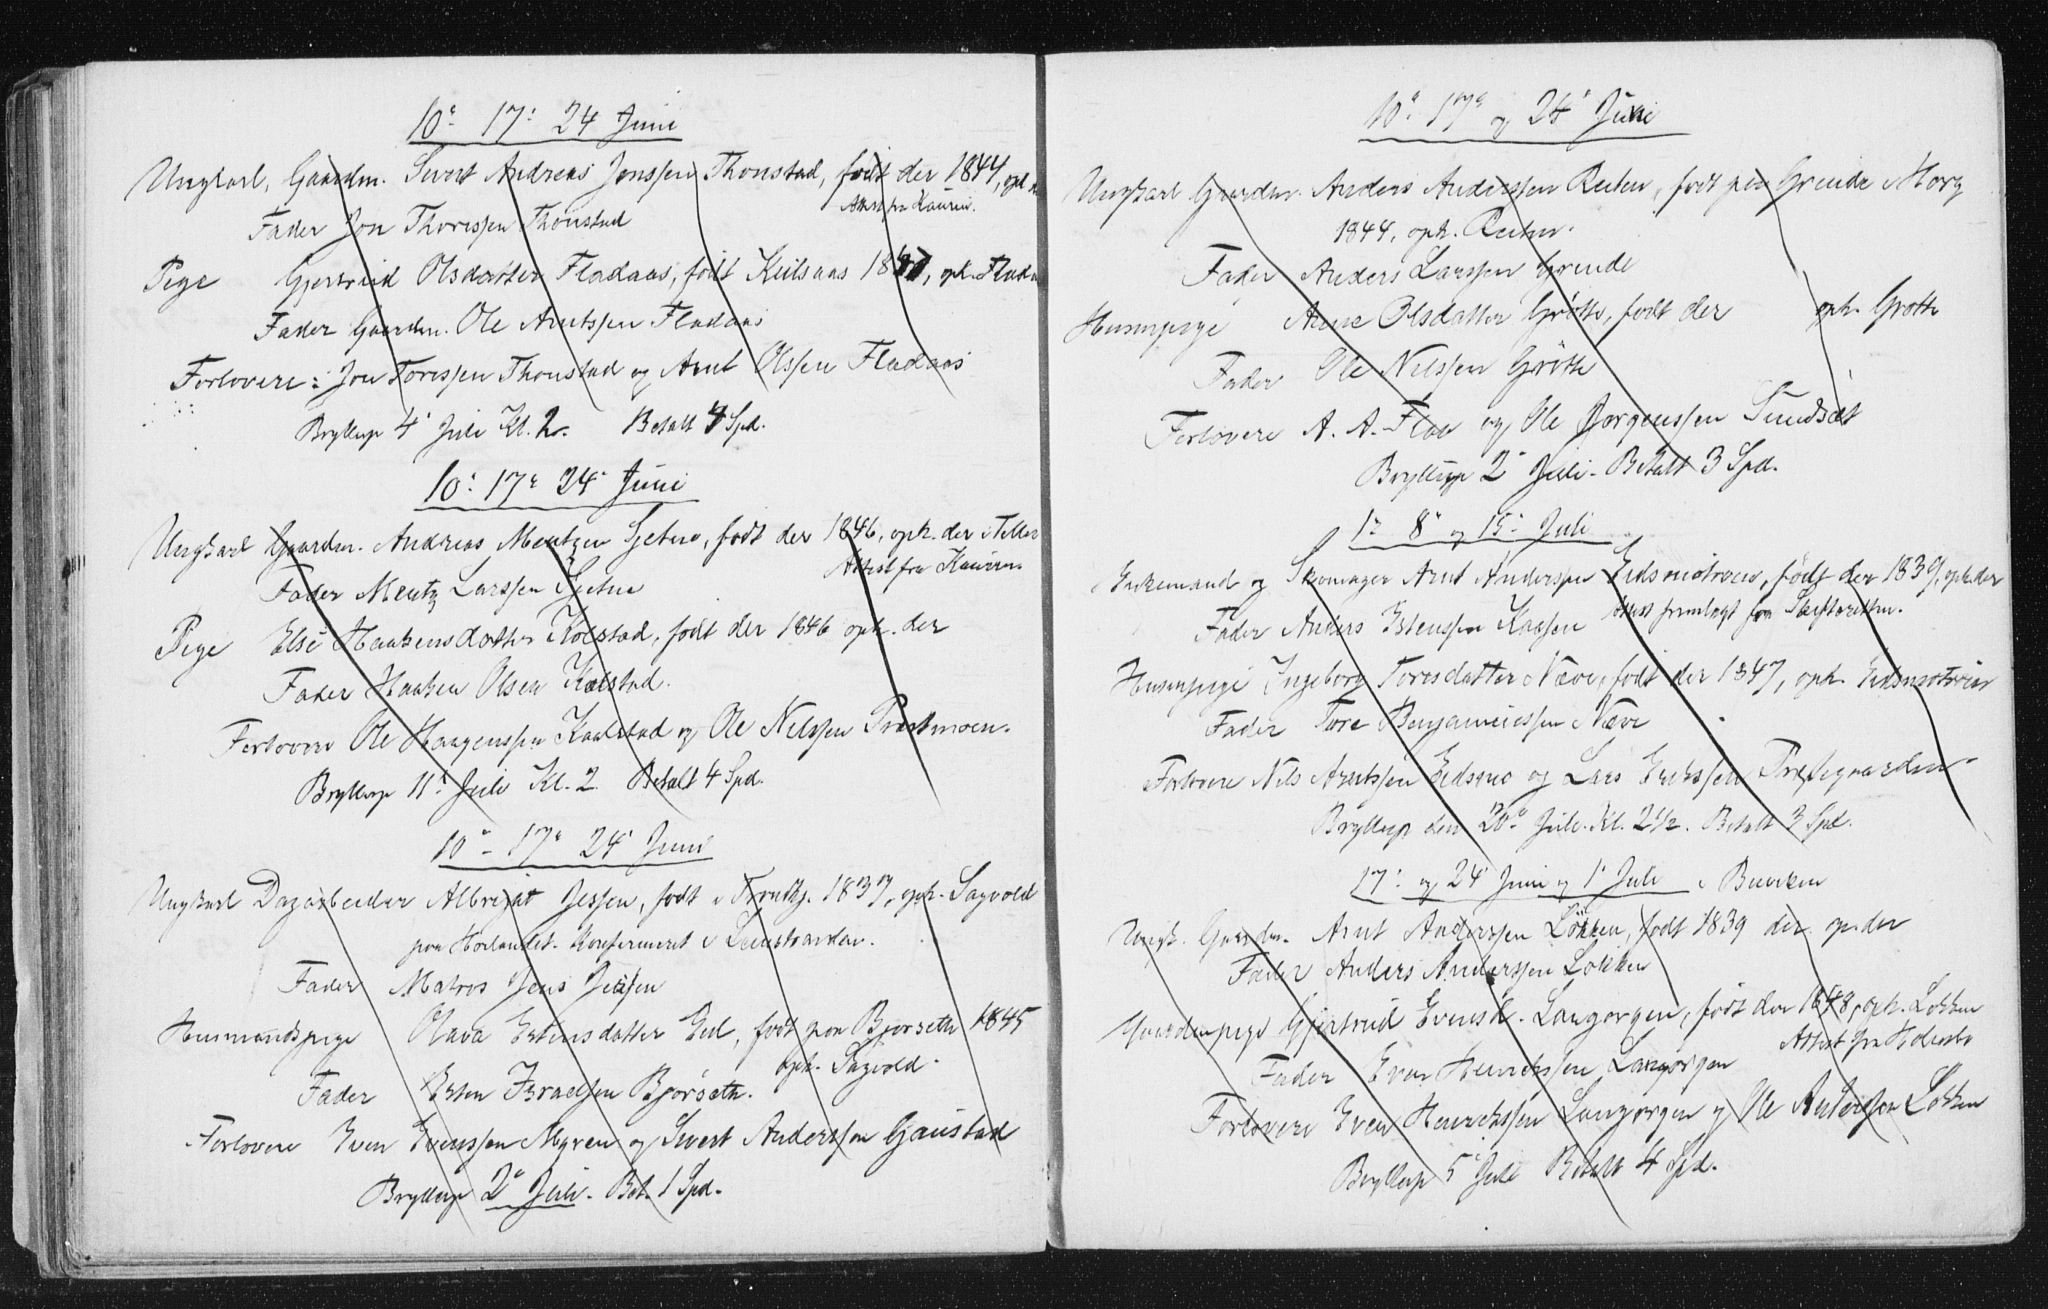 10' 17' 24 Juni
Ungkarl, Gaardm. Sivert Andreas Jonssen Thonstad, født der 1844, opk.
Attest fra Kaurin.
Fader Jon Thoressen Thonstad
Pige Gjertrud Olsdatter Fladaas, født Kulsaas opk. Fladaas
Fader Gaardm. Ole Arntssen Fladaas
Forlovere: Jon Toressen Thonstad og Arnt Olssen Fladaas
Bryllup 4' Juli Kl. 2. Betalt 4 Spd.
10' 17' 24' Juni
Ungkarl Gaardm. Andreas Mentzen Sjetne, født der 1846, opk. der i Tiller
Attest fra Kaurin.
Fader Mentz Larssen Sjetne
Pige Else Haakensdatter Kolstad, født der 1846 opk. der
Fader Haaken Olsen Kolstad.
Forlovere Ole Haagenssen Kaalstad og Ole Nilssen Prestmoen.
Bryllup 11' Juli Kl. 2. Betalt 4 Spd.
10' - 17' 24' Juni
Ungkarl Dagarbeider Albregt Jessen, født i Trondhj. 1837, opk. Sagvold
paa Horlandet. Konfirmeret i
Fader Matros Jens Jessen
Husmandspige Olava Estensdatter Eid, født paa Bjørseth 1845
opk. Sagvold.
Fader Esten Israelsen Bjørseth.
Forlovere Even Evenssen Myren og Sivert Anderssen Gaustad
Bryllup 2' Juli. Bet. 1 Spd.
10' 17' og 24' Juni
Ungkarl Gaardm. Anders Anderssen Reiten, født paa Grinde i Horg
1844, opk. Reiten.
Fader Anders Larssen Grinde
Husmpige Anne Olsdatter Grøtte, født der opk. Grøtte
Fader Ole Nilssen Grøtte
Forlovere A. A. Flaa og Ole Jørgenssen Sundsæt
Bryllup 2' Juli. Betalt 3 Spd.
1' 8' og 15' Juli
Enkemand og Skomager Arnt Anderssen Eidsmotrøen, født der 1839, opk. der
Attest fremlagt fra Skifteretten.
Fader Anders Estenssen Kaasen
Husmpige Ingeborg Toresdatter Næve, født der 1847, opk. Eidsmotrøen
Fader Tore Benjaminssen Næve
Forlovere Nils Arntssen Eidsmo og Lars Erikssen Præstegaarden
Bryllup den 20' Juli Kl. 2 1/2. Betalt 3 Spd.
17' og 24' Juni og 1' Juli i Buviken
Ungk. Gaardm. Arnt Anderssen Løkken, født 1839 der op. der
Fader Anders Anderssen Løkken
Gaardmpige Gjertrud Evensd. Langørgen, født der 1848, opk. Løkken
Attest fra
Fader Even Henrikssen Langørgen
Forlovere Even Henrikssen Langørgen og Ole Anderssen Løkken
Bryllup 5' Juli Betalt 4 Spd.